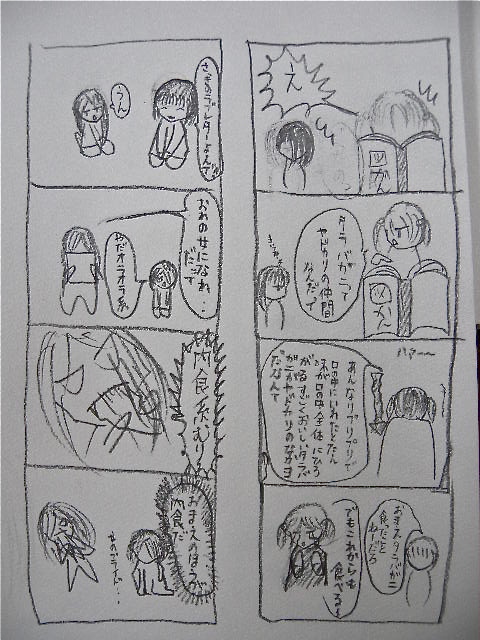 え
図かん
タラバガニって
ヤドカリの仲間
なんだって
図かん
ハァ〜
あんなプリプリで
口の中にいれたとたん
味が口の中全体にひろ
がるすごくおいしいタラバ
ガニがヤドカリのなかま
だなんて
おまえタラバガニ
食ったこと
ねーだろ
でもこれからも
食べる〜
さっきのラブレターよんで!!
うん
おれの女になれ・・
だって
やだオラオラ系
肉食系むり
おまえのほうが
肉食だ